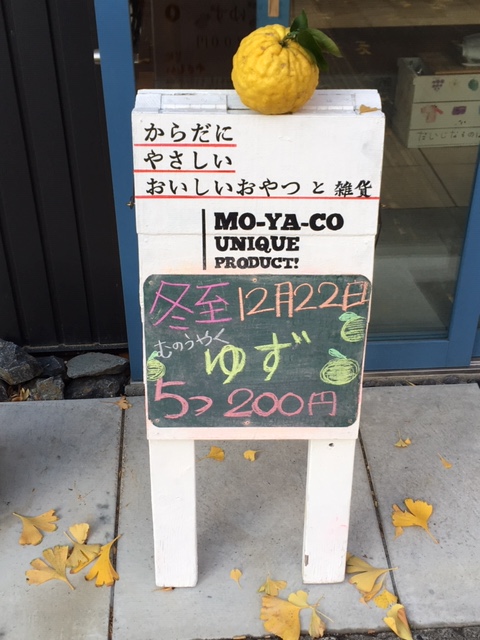 からだに
やさしい
おいしいおやつ と 雑貨
MO-YA-CO
UNIQUE
PRODUCT!
冬至 12月22日
むのうやく
ゆず
5つ 200円